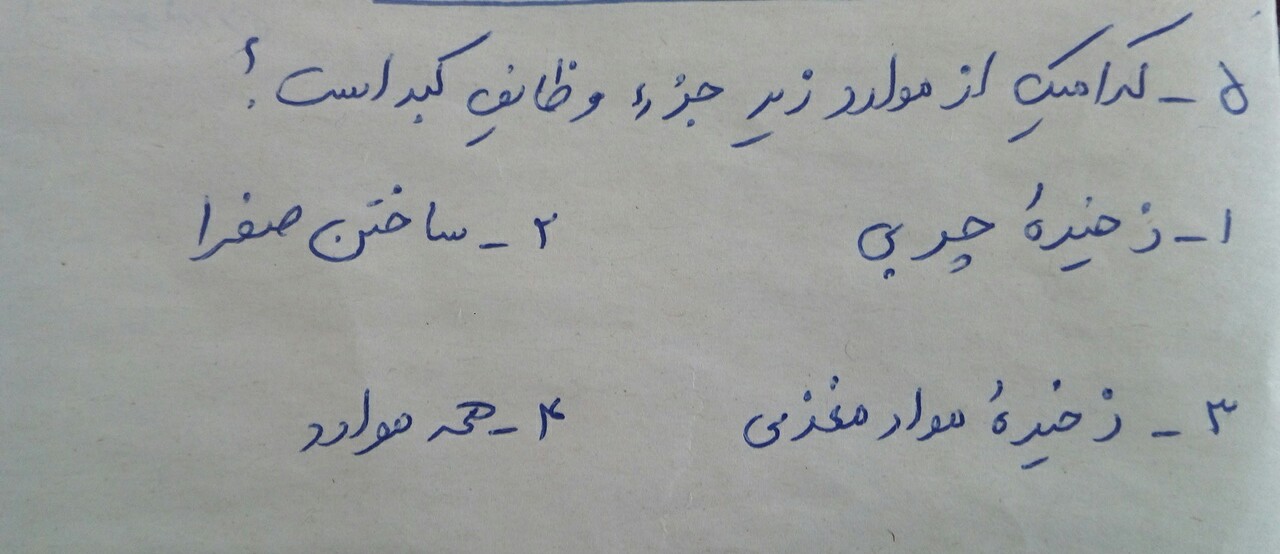 ۵ - کدامیک از موارد زیر جزء وظایف کبد است؟
۱ - ذخیرهٔ چربی ۲ - ساختن صفرا
۳ - ذخیرهٔ مواد مغذی ۴ - همه موارد